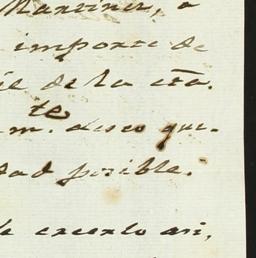 Martinez, a
importe de
de la cta.
te
m. deseo que.
dad posible.
excepto asi,